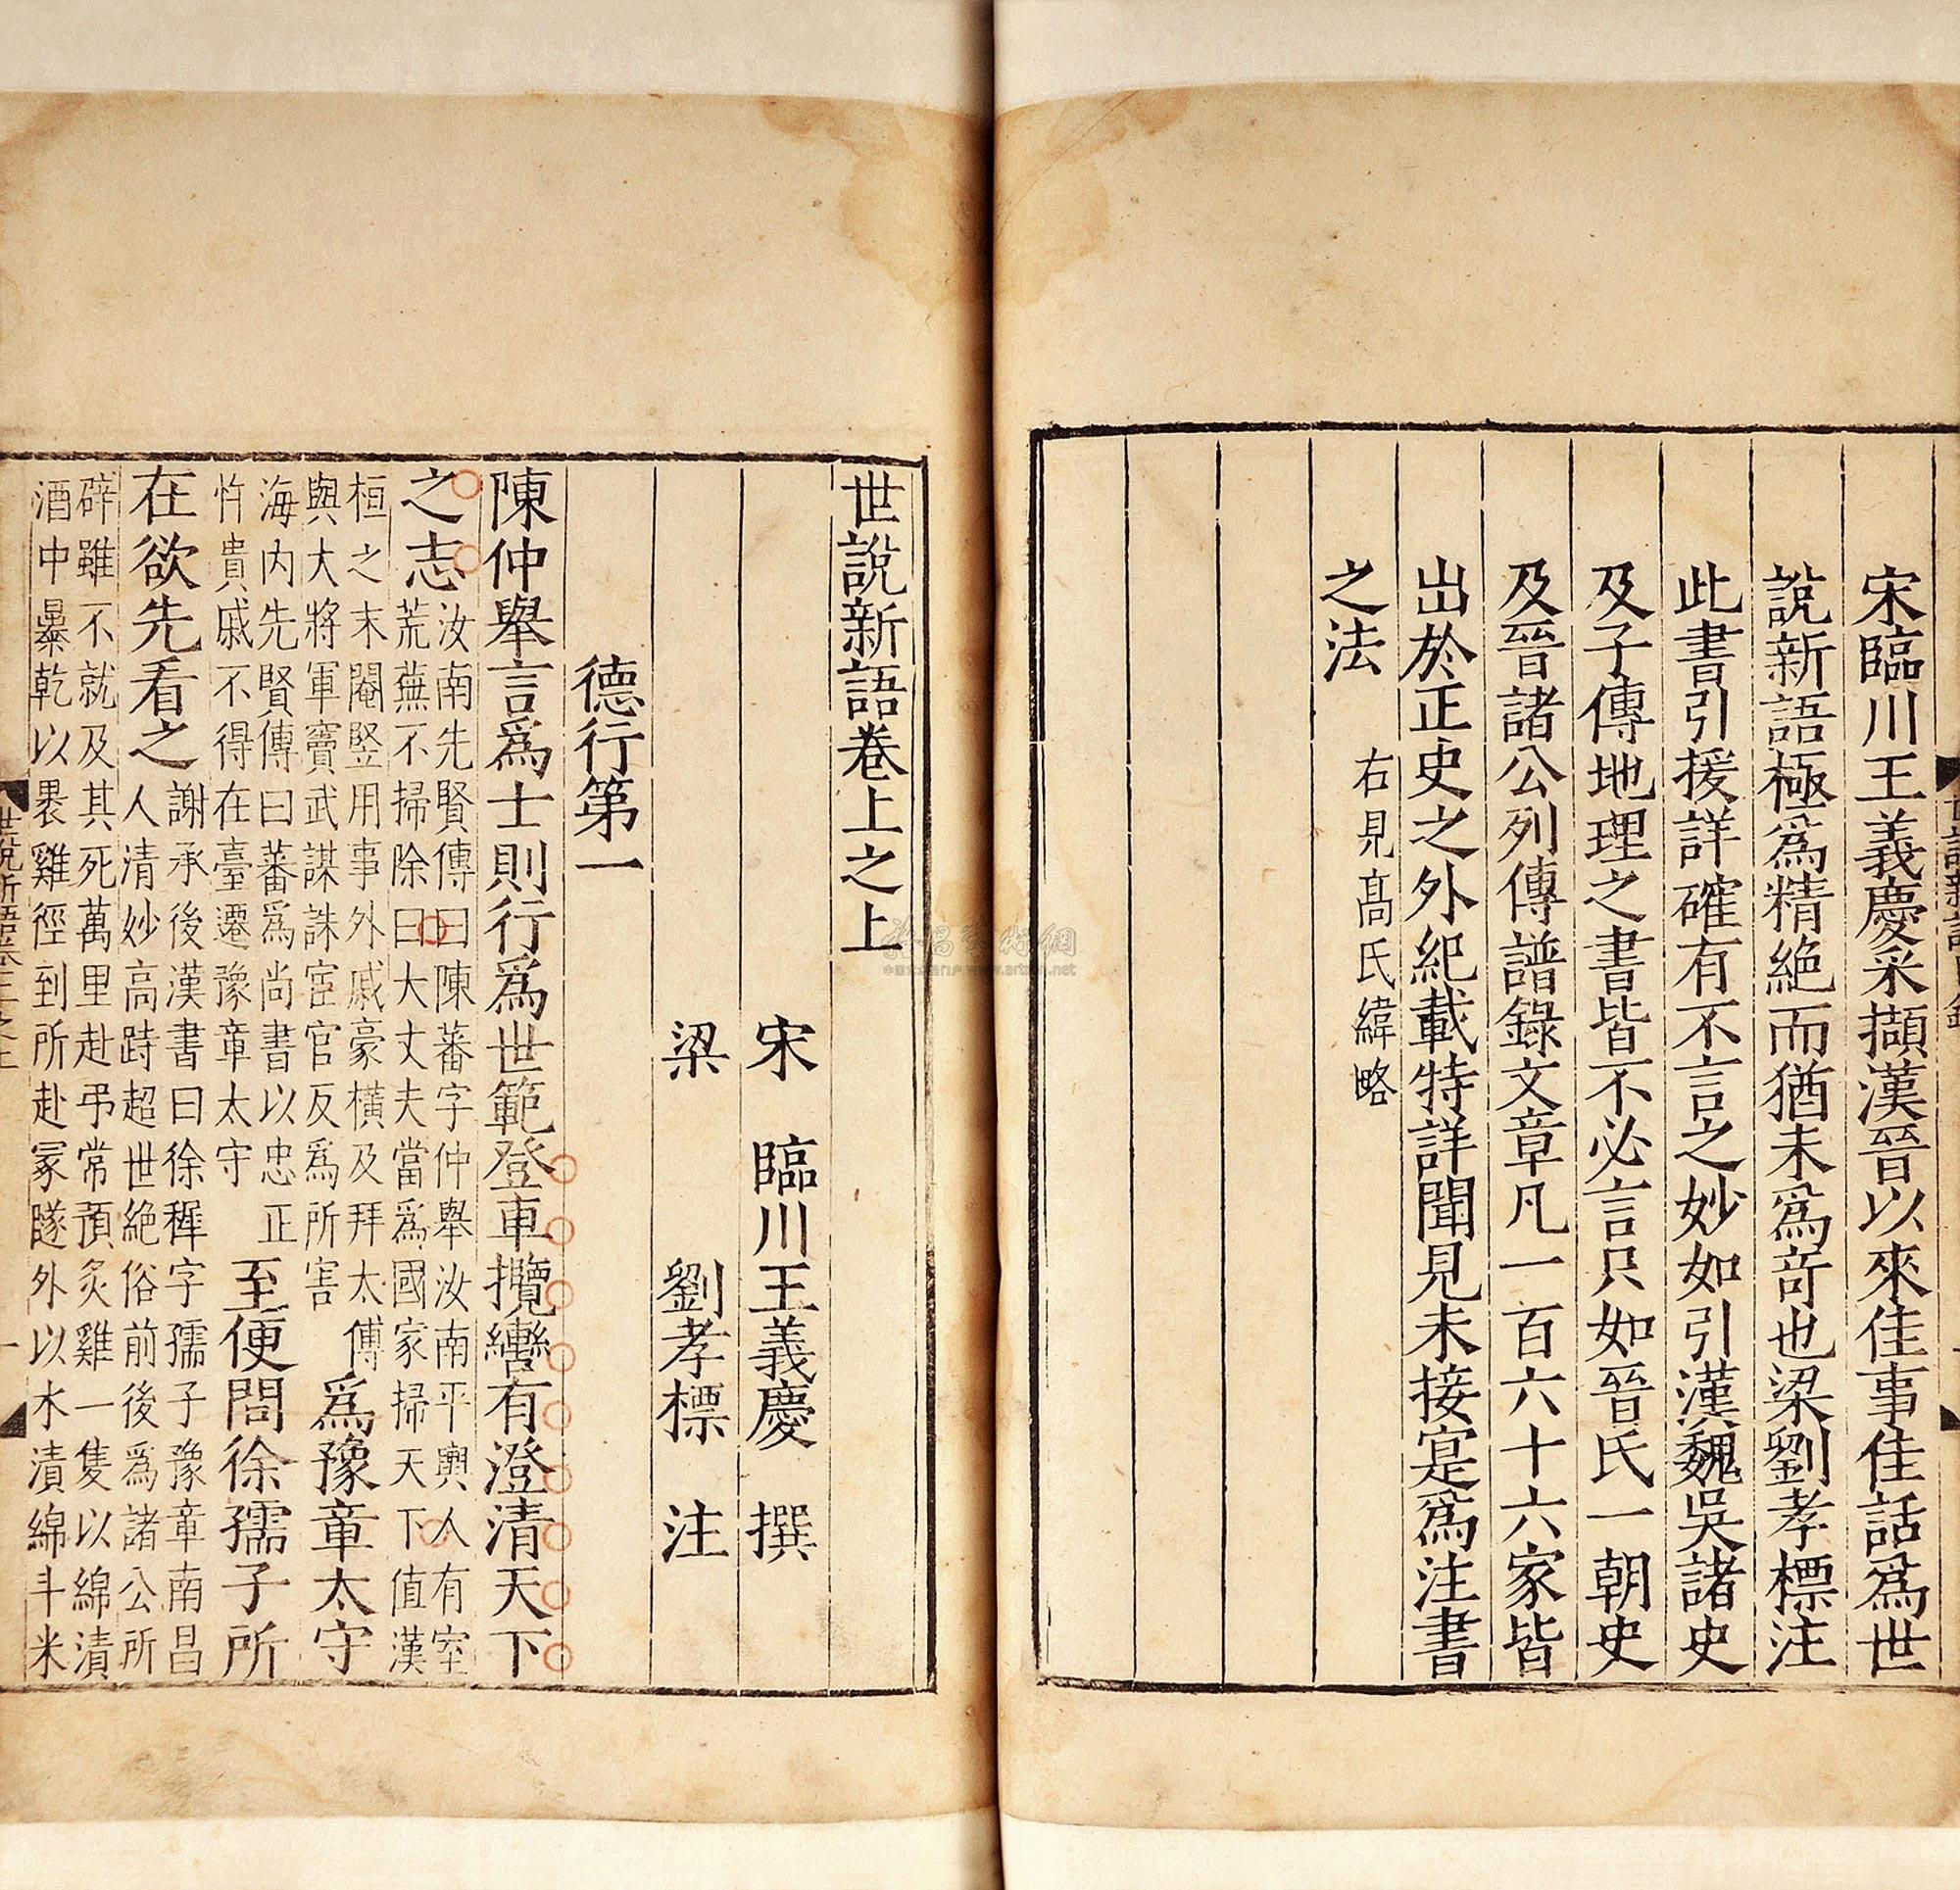 宋臨川王義慶采擷漢晉以來佳事佳話爲世
說新語極爲精絕而猶未爲奇也梁劉孝標注
此書引援詳確有不言之妙如引漢魏吳諸史
及子傳地理之書皆不必言只如晉氏一朝史
及晉諸公列傳譜錄文章凡一百六十六家皆
出於正史之外紀載特詳聞見未接寔爲注書
之法
右見髙氏緯略
世說新語卷上之上
宋 臨川王義慶 撰
梁 劉孝標 注
德行第一
陳仲舉言爲士則行爲世範登車攬轡有澄清天下
之志
汝南先賢傳曰陳蕃字仲舉汝南平輿人有室
荒蕪不掃除曰大丈夫當爲國家掃天下值漢
桓之末閹竪用事外戚豪橫及拜太傅
與大將軍竇武謀誅宦官反爲所害
爲豫章太守
海内先賢傳曰蕃爲尚書以忠正
忤貴戚不得在臺遷豫章太守
至便問徐孺子所
在欲先看之
謝承後漢書曰徐穉字孺子豫章南昌
人清妙高跱超世絕俗前後爲諸公所
辟雖不就及其死萬里赴弔常預炙雞一隻以綿漬
酒中暴乾以裹雞徑到所赴冢隧外以水漬綿斗米